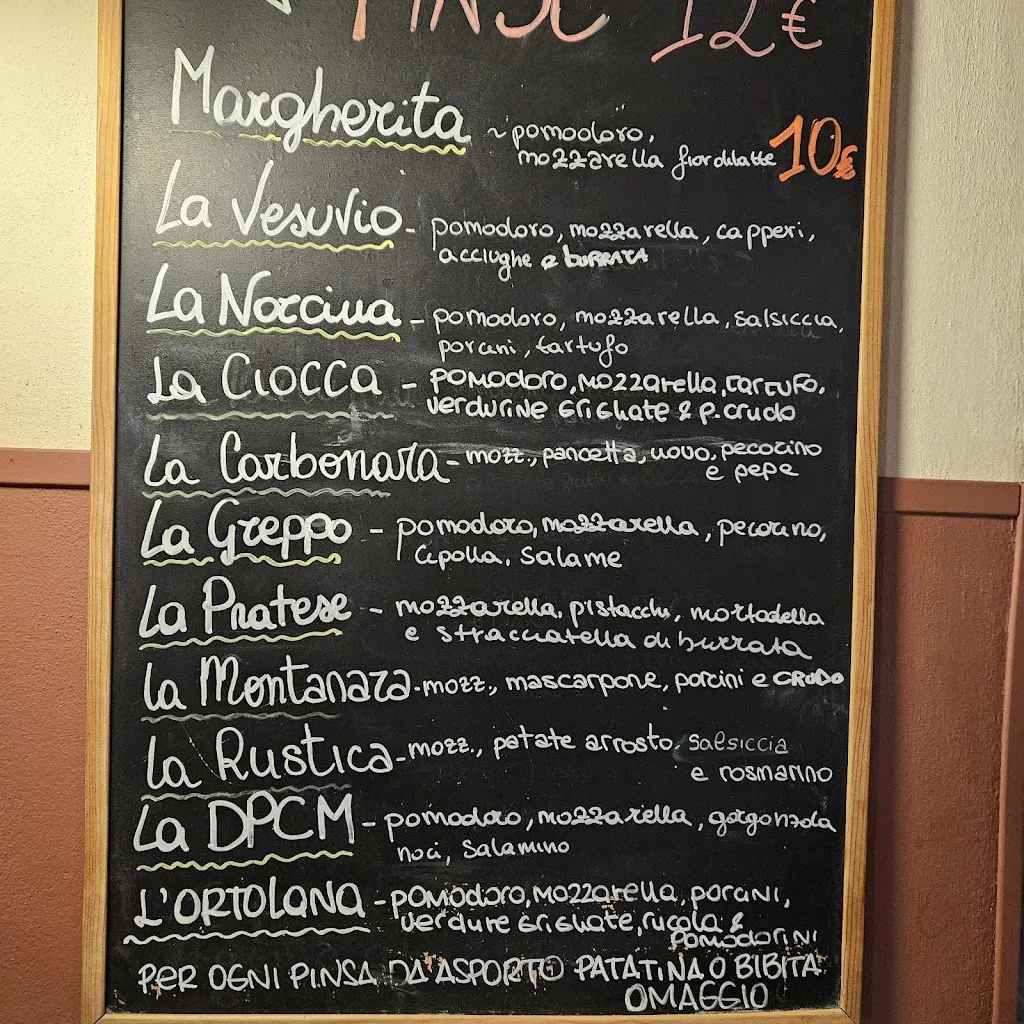 PINSE 12€
Margherita ~ pomodoro,
mozzarella fiordilatte 10€
La Vesuvio - pomodoro, mozzarella, capperi,
acciughe e BURRATA
La Norcina - pomodoro, mozzarella, salsiccia,
porcini, tartufo
La CIOCCA - POMODORO, MOZZArella, TARTUFO,
verdurine Grigliate & P. crudo
La Carbonara - mozz., pancetta, uovo, pecorino
e pepe
La Greppo - pomodoro, mozzarella, pecorino,
cipolla, salame
La Pratese - mozzarella, pistacchi, mortadella
e stracciatella di burrata
La Montanara - mozz., mascarpone, porcini e CRUDO
La Rustica - mozz., patate arrosto, salsiccia
e rosmarino
La DPCM - pomodoro, mozzarella, gorgonzola
noci, salamino
L'ORTOLANA - POMODORO, MOZZArella, porcini,
verdure Grigliate, rucola &
POMODORINI
PER OGNI PINSA DA ASPORTO PATATINA O BIBITA
OMAGGIO